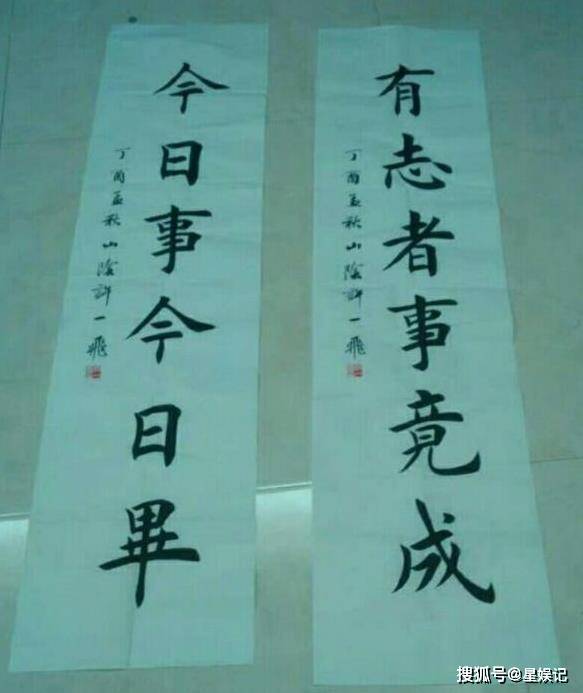 有志者事竟成
丁酉孟秋山陰許一飛
今日事今日畢
丁酉孟秋山陰許一飛
搜狐号@星娱记